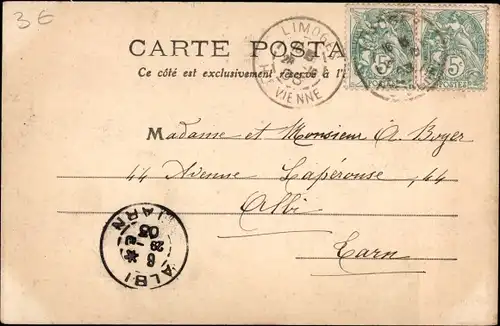 3€
CARTE POSTA
Ce côté est exclusivement réservé à l'
LIMOGES
Hte VIENNE
5c
5c
POSTES
Madame et Monsieur A. Boyer
44 Avenue Lapérouse, 44
Albi
Tarn
ALBI
TARN
6
03